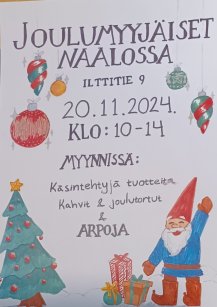 JOULUMYYJÄISET
NAALOSSA
ILTTITIE 9
20.11.2024.
KLO: 10-14
MYYNNISSÄ:
Käsintehtyjä tuotteita
Kahvit & joulutortut
&
ARPOJA